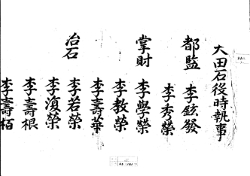 大田石役時執事
都監 李鉉發
李秀榮
掌財 李學榮
李教榮
李壽華
治石 李若榮
李濵榮
李壽根
李壽栢